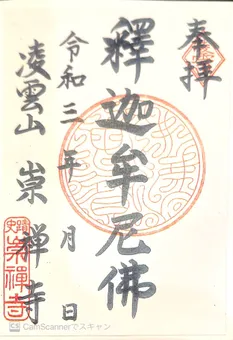 奉拝
釋迦牟尼佛
令和三年 月 日
凌雲山 崇禅寺
崇禪寺
CamScannerでスキャン